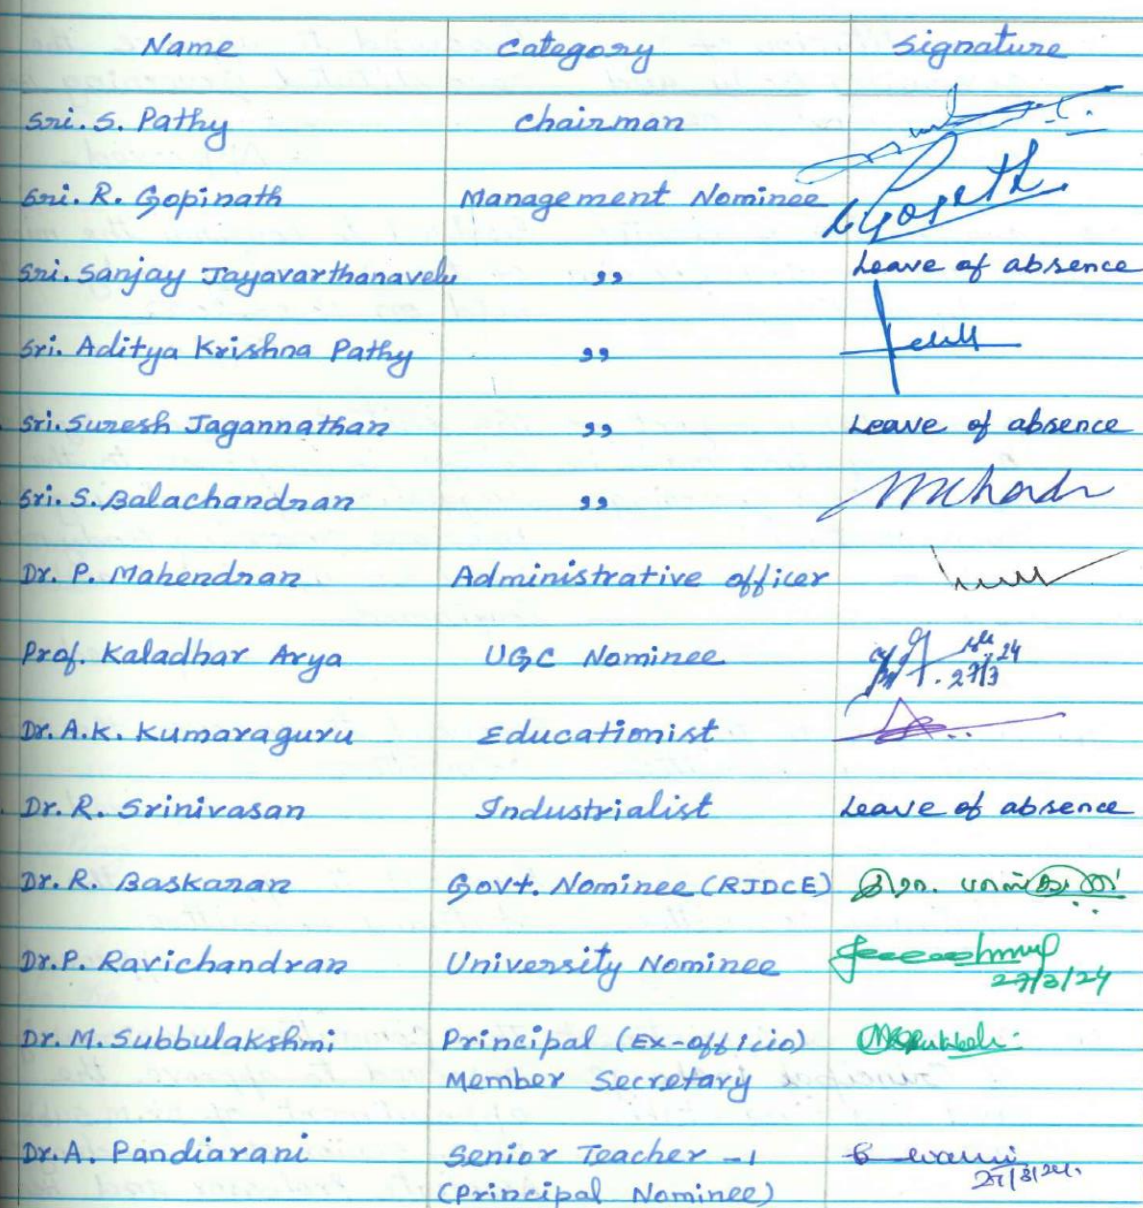 Name Category Signature
Sri. S. Pathy Chairman
Sri. R. Gopinath Management Nominee
Sri. Sanjay Jayavarthanavelu ,, Leave of absence
Sri. Aditya Krishna Pathy ,,
Sri. Suresh Jagannathan ,, Leave of absence
Sri. S. Balachandran ,,
Dr. P. Mahendran Administrative officer
Prof. Kaladhar Arya UGC Nominee
27/3/24
Dr. A.K. Kumaraguru Educationist
Dr. R. Srinivasan Industrialist Leave of absence
Dr. R. Baskaran Govt. Nominee (RJDCE)
Dr. P. Ravichandran University Nominee
27/3/24
Dr. M. Subbulakshmi Principal (Ex-officio)
Member Secretary
Dr. A. Pandiarani Senior Teacher -1
27/3/24.
(Principal Nominee)